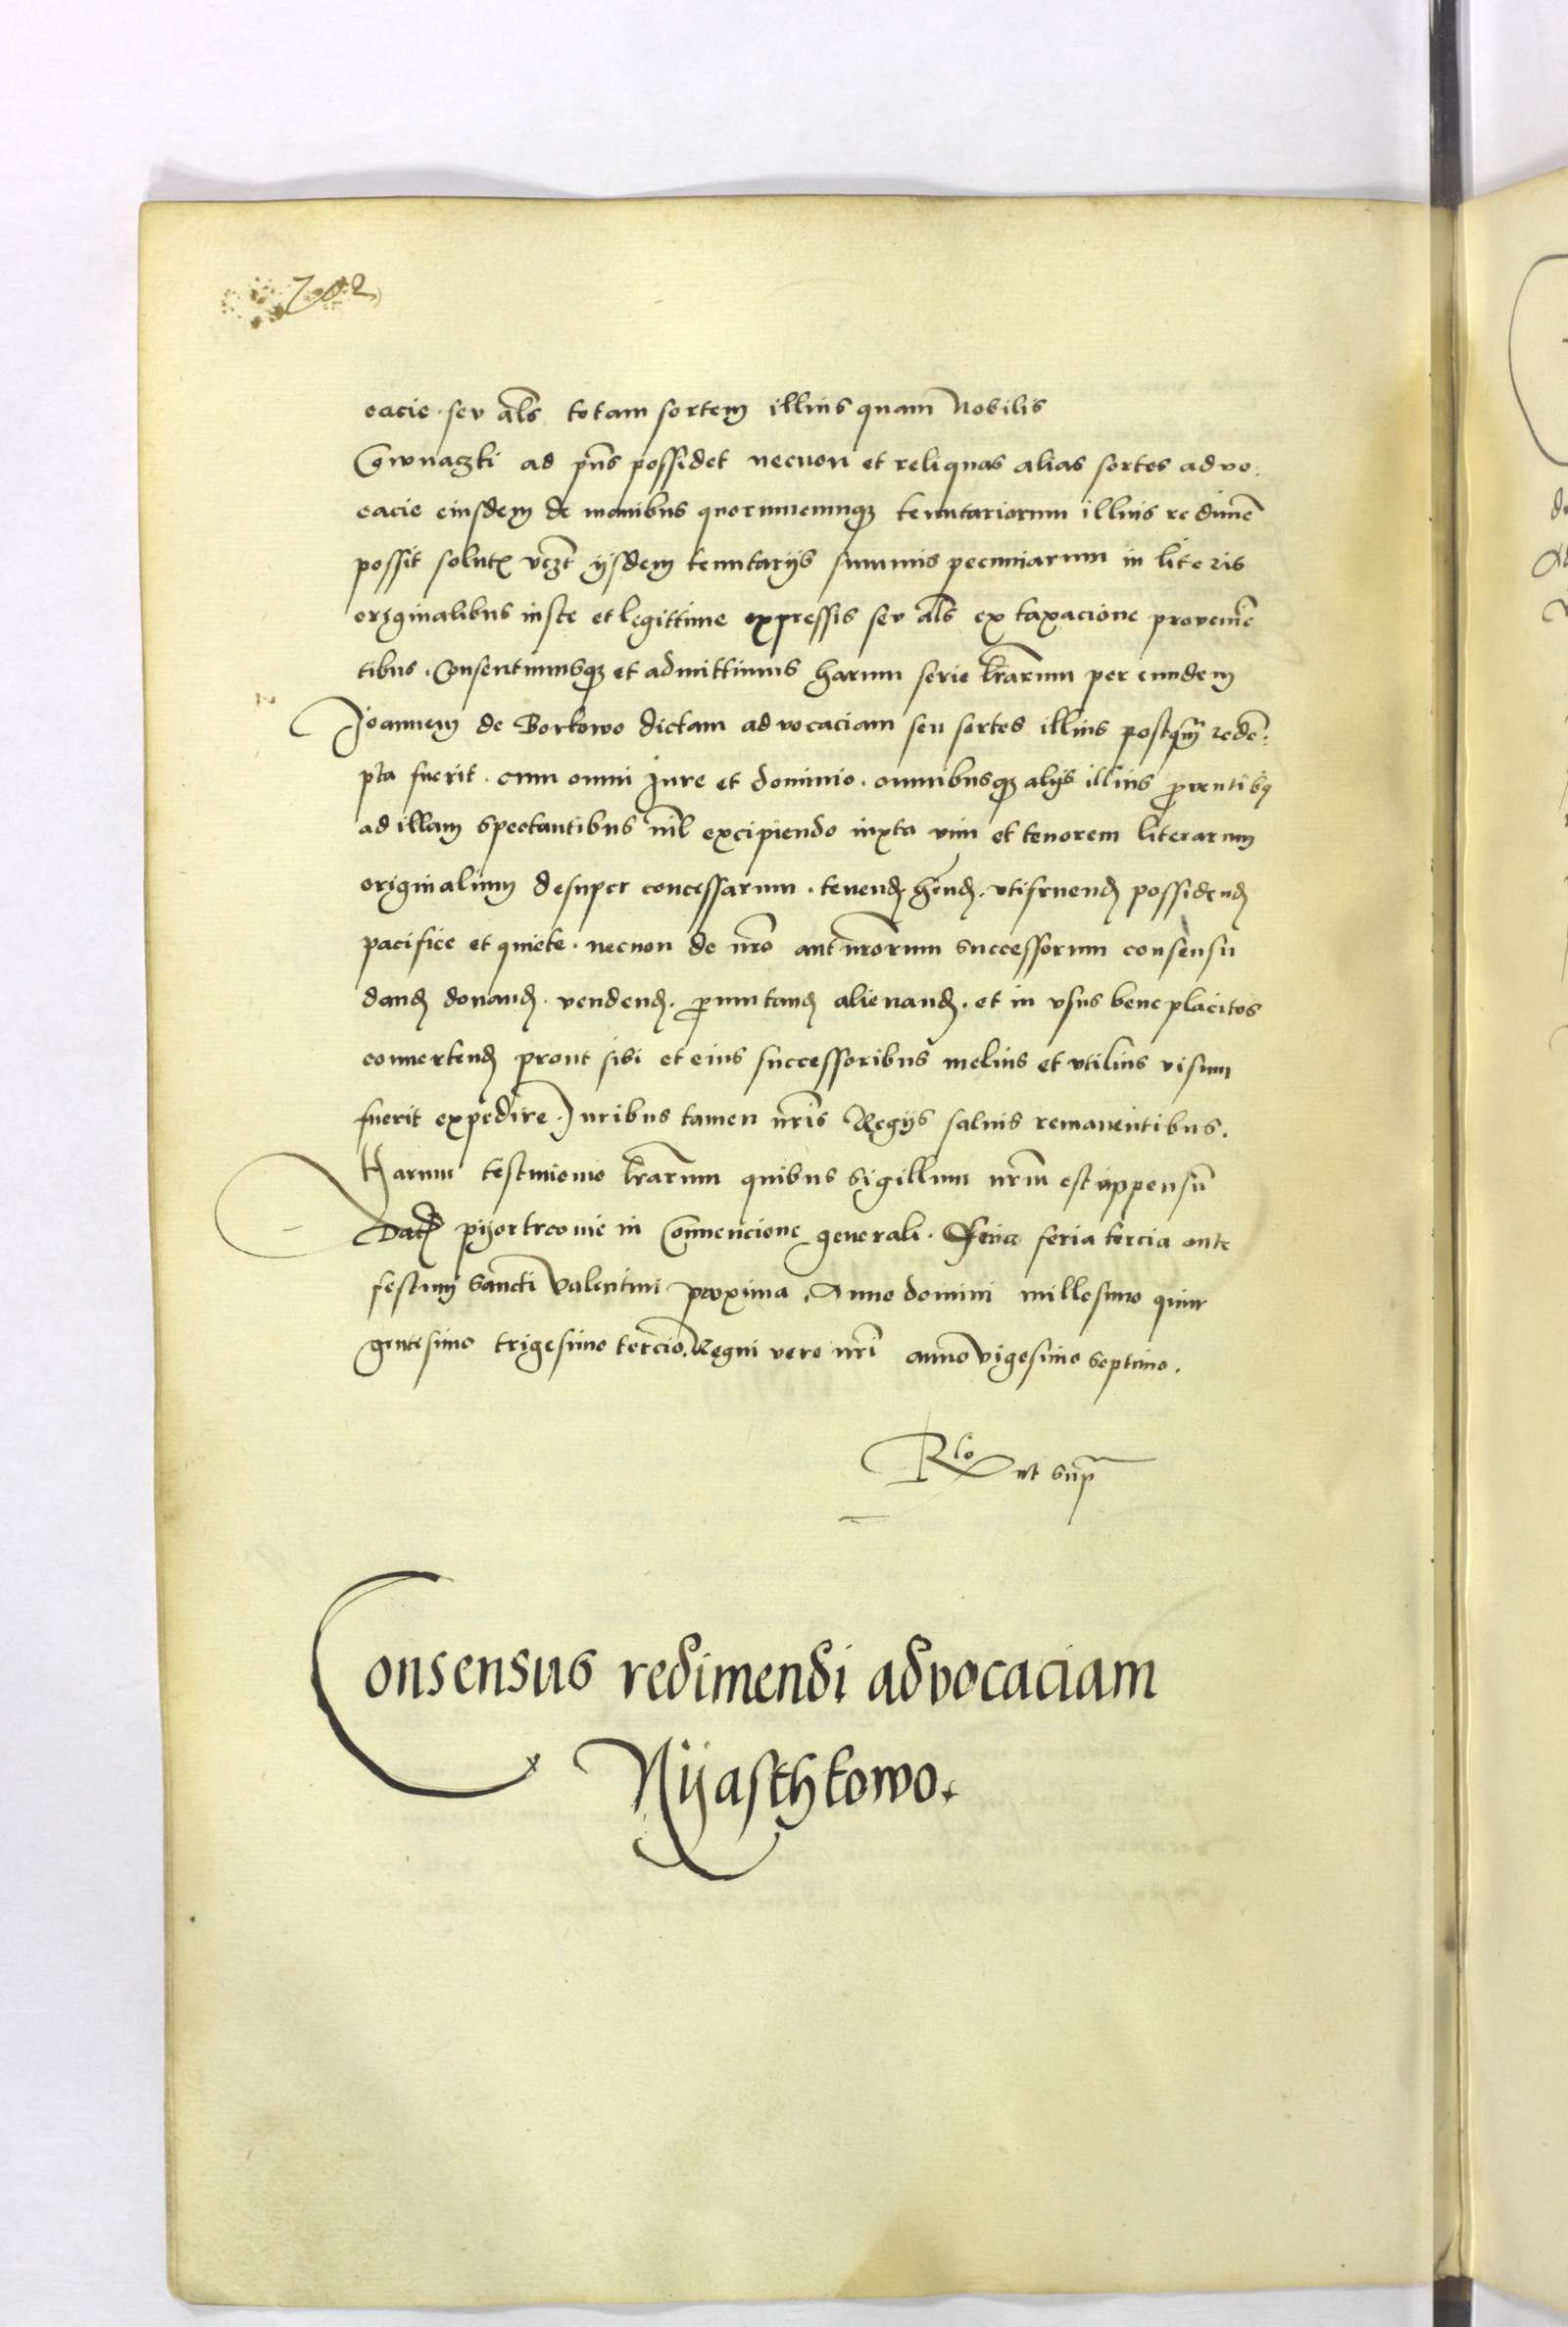 702
cacie seu als totam sortem illius quam Nobilis
Gwnaczki ad pns possidet necnon et reliquas alias sortes advo
cacie eiusdem de manibus quorumcunqȝ tenutariorum illius redime
possit solutis vczt ijsdem tenutarijs summis pecuniarum in literis
originalibus iuste et legittime expressis seu als ex taxacione provenie
tibus. Consentimusqȝ et admittimus harum serie lrarum per eundem
Joannem de Borkowo dictam advocaciam seu sortes illius postqm redem
pta fuerit. cum omni Jure et dominio. omnibusqȝ alijs illius proventibȝ
ad illam spectantibus nil excipiendo iuxta vim et tenorem literarum
originalium desuper concessarum. tenend hend. vtifruend possidend
pacifice et quiete. necnon de nro aut nrorum successorum consensu
dand donand. vendend. permutand alienand. et in vsus beneplacitos
convertend prout sibi et eius successoribus melius et vtilius visum
fuerit expedire. Juribus tamen nris Regijs salvis remanentibus.
Harum testimonio lrarum quibus sigillum nrm est appensum
Dat pijotrcovie in Convencione generali. feria tercia ante
festum Sancti Valentini proxima. Anno domini millesimo quin
gentesimo trigesimo tercio. Regni vero nri anno vigesimo septimo.
Rlo ut supra
Consensus redimendi advocaciam
Nijasthkowo.